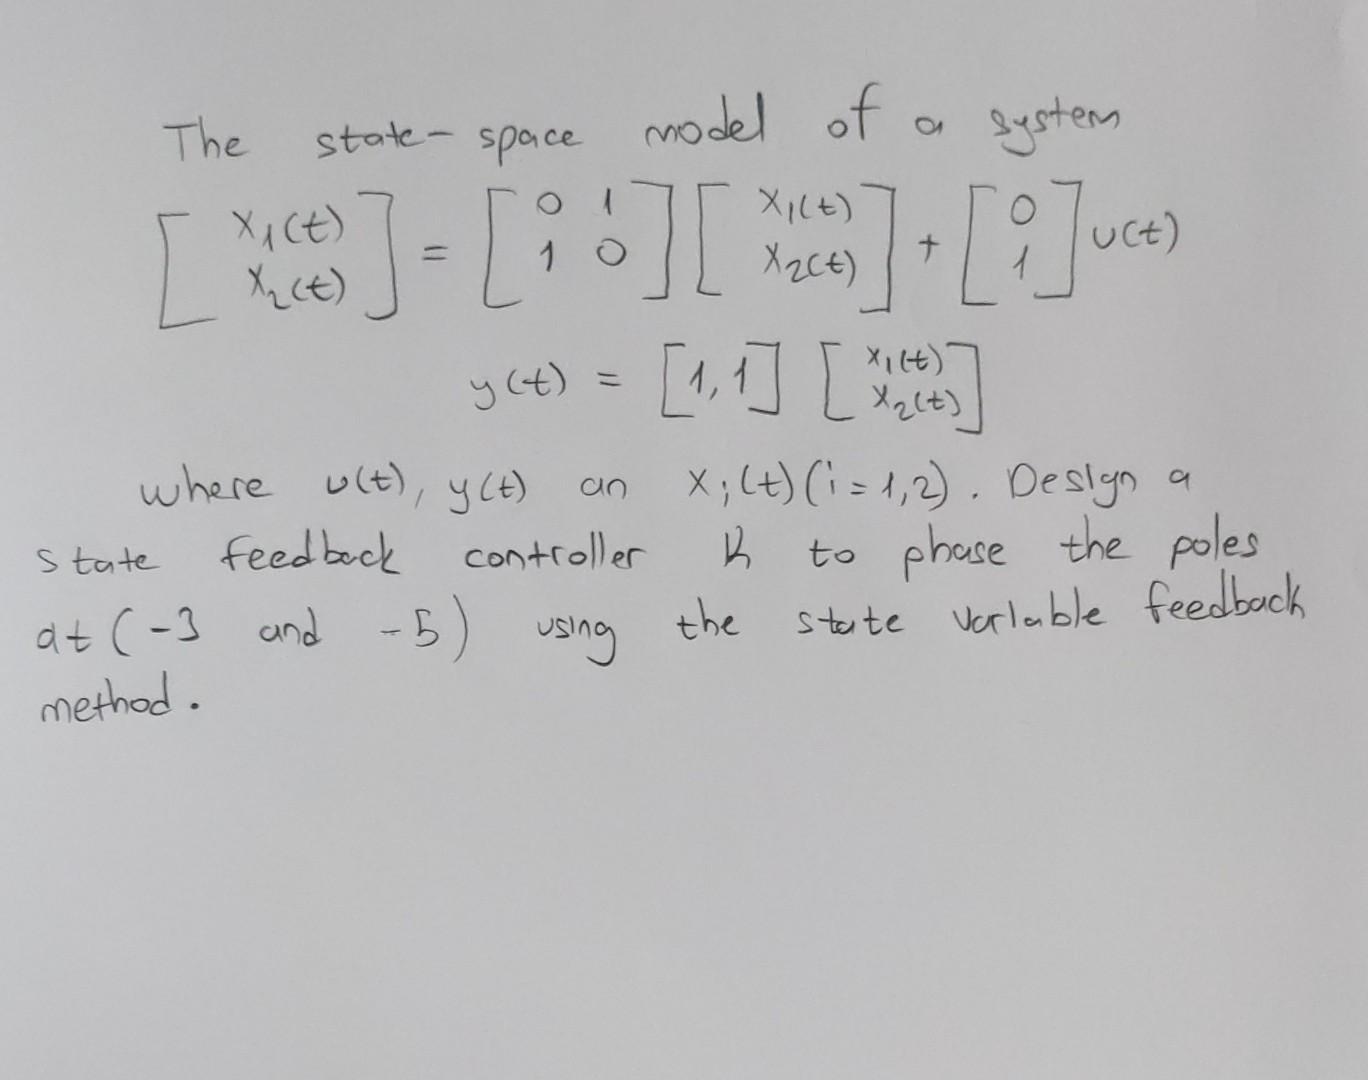 The state-space model of a system
[ x₁(t) x₂(t) ] = [ 0 1 1 0 ] [ x₁(t) x₂(t) ] + [ 0 1 ] u(t)
y(t) = [1,1] [ x₁(t) x₂(t) ]
where u(t), y(t) an xᵢ(t) (i=1,2). Design a
state feedback controller K to phase the poles
at (-3 and -5) using the state variable feedback
method.